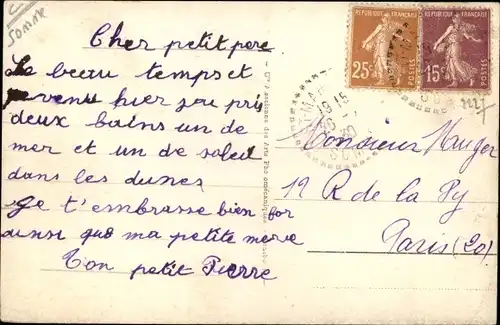 SOMME
Cher petit pere
Le beau temps et
venu hier j'ai pris
deux bains un de
mer et un de soleil
dans les dunes
Je t'embrasse bien for
ainsi que ma petite mere
Ton petit Pierre
REPUBLIQUE FRANÇAISE
25c
POSTES
REPUBLIQUE FRANÇAISE
15c
POSTES
19 15
30
SOMME
Monsieur
12 R de la Py
Paris (20)